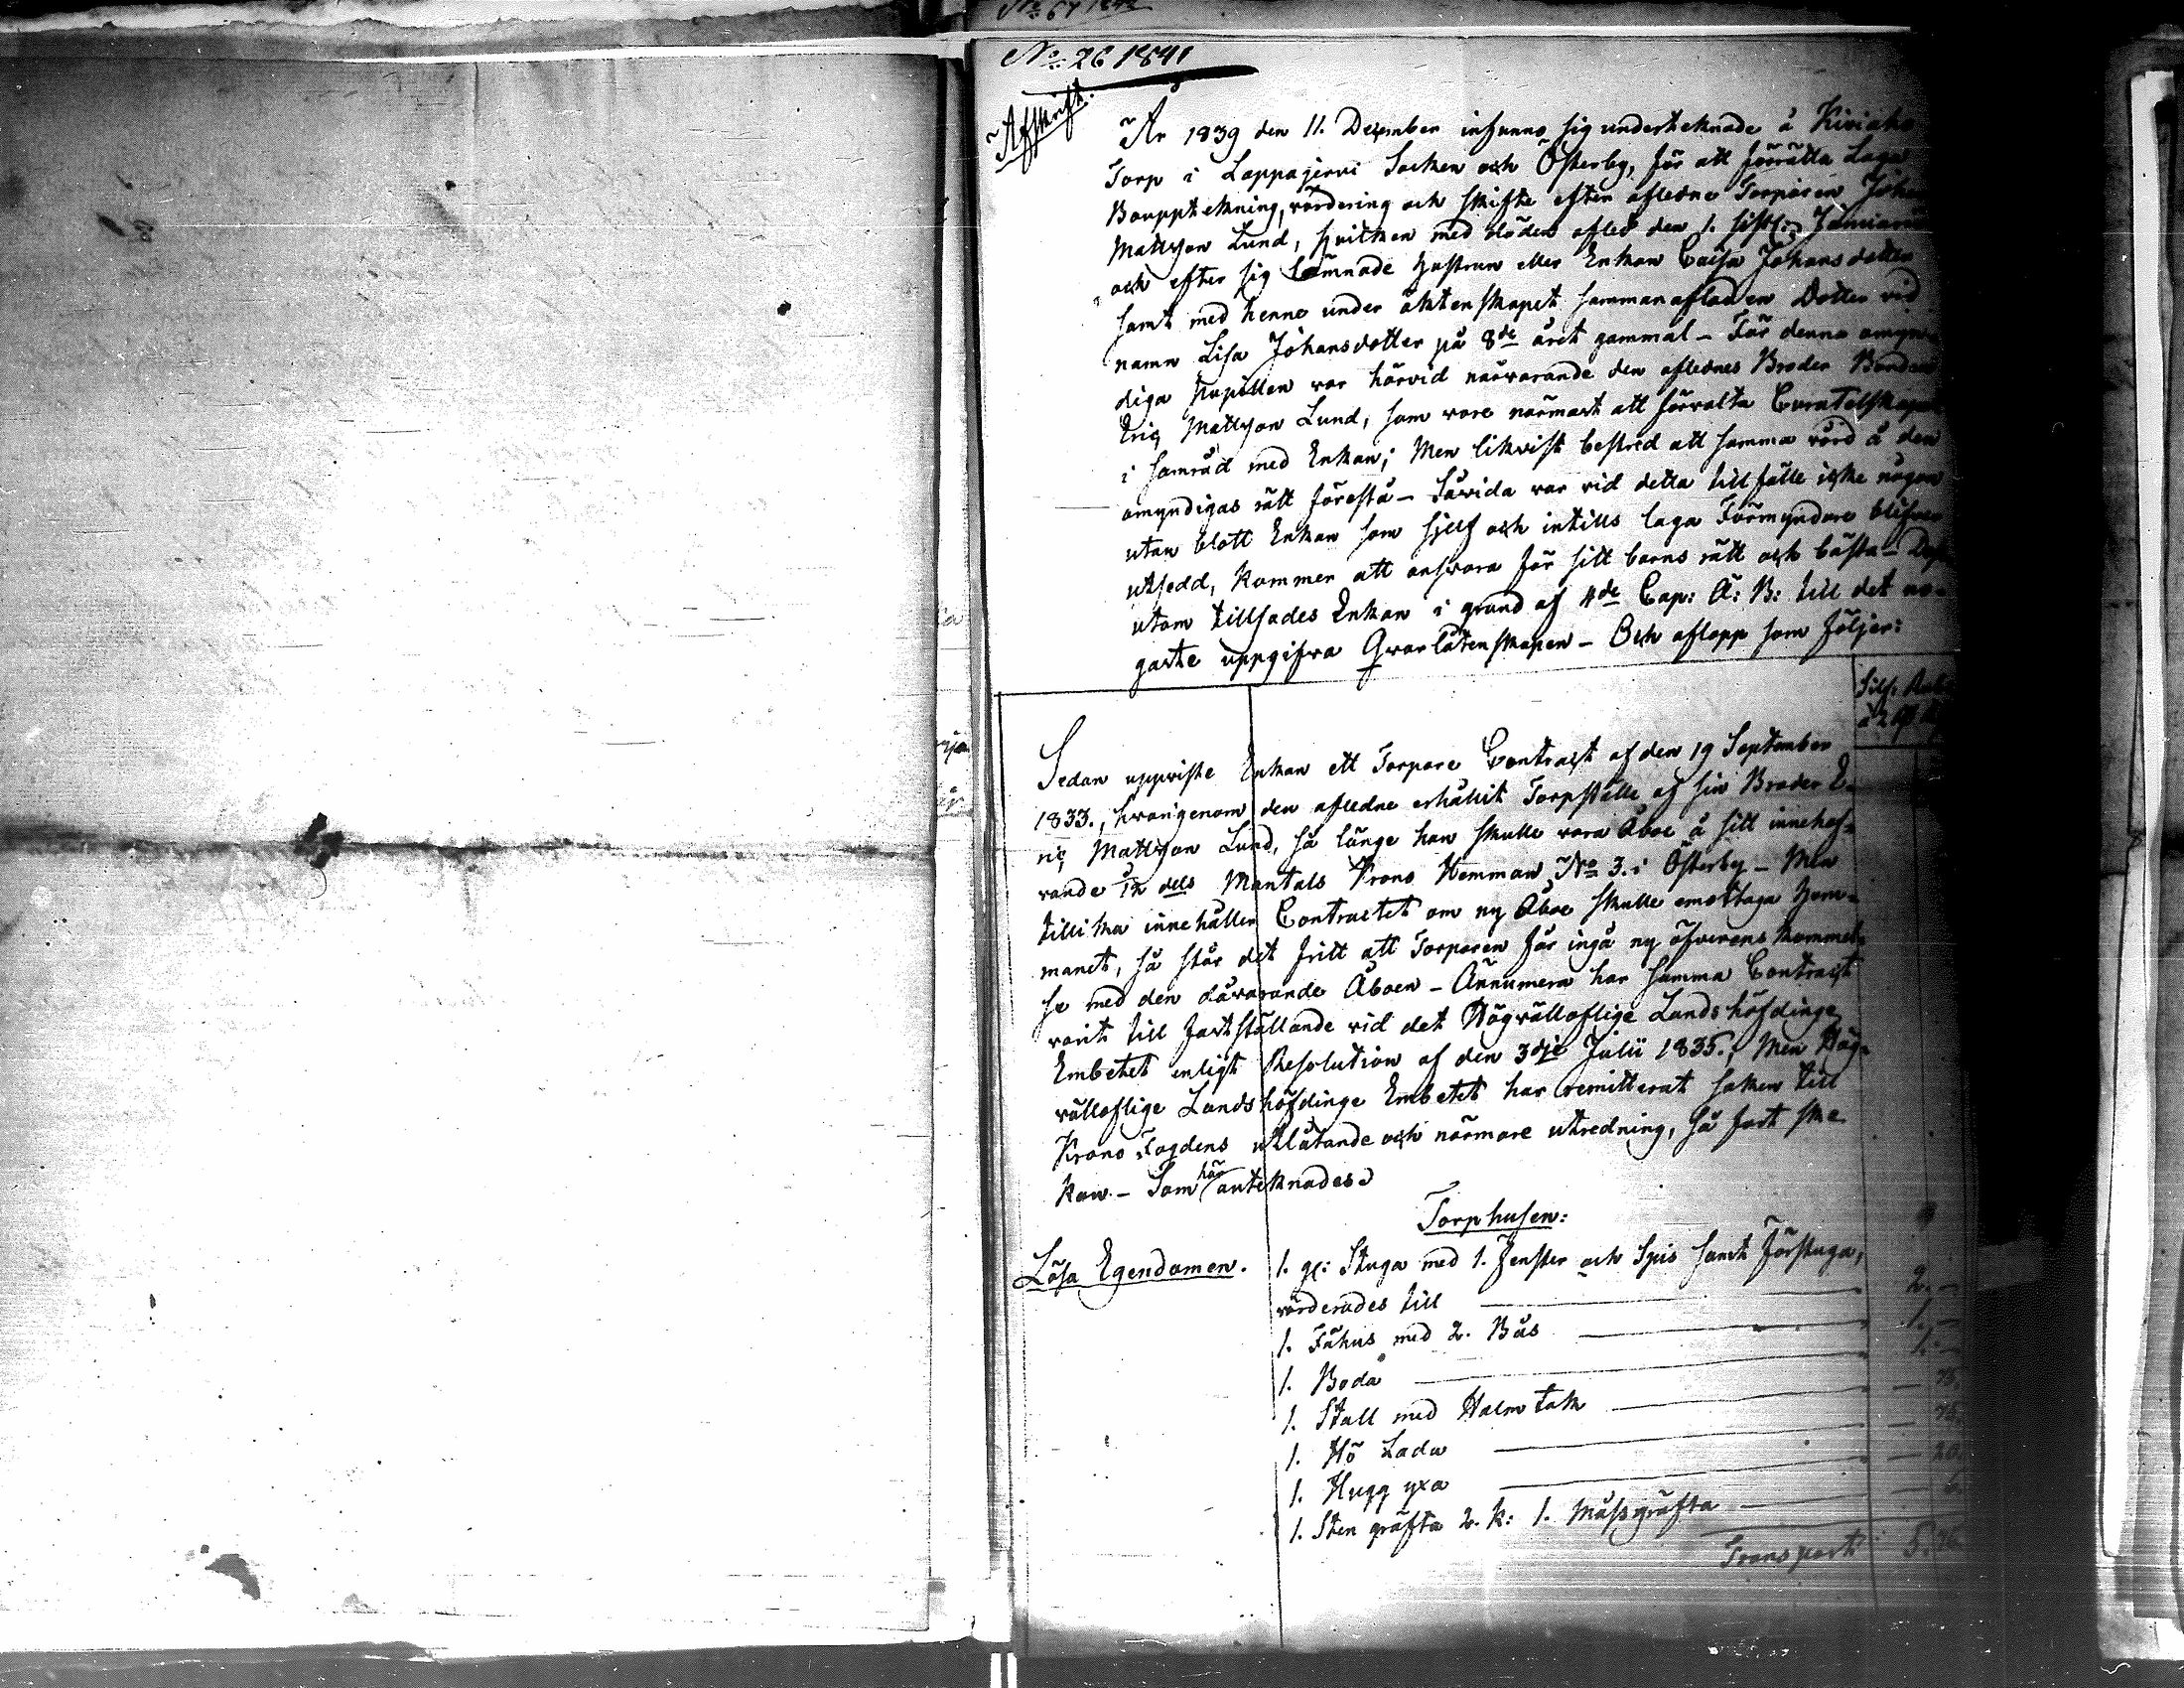 No 26 1841
Afskrift.
År 1839 den 11. December infunno sig undertecknade å Kiviaho
Torp i Lappajervi Socken och Österby, för att förrätta Laga
Bouppteckning, värdering och skifte efter aflidne Torparen Johan
Mattsson Lund, hvilken med döden afled den 1. sistl: Januarii
och efter sig lämnade hustrun eller Enkan Caisa Johansdotter
samt med henne under äktenskapet sammanaflad en Dotter vid
namn Lisa Johansdotter på 8de året gammal – För denna omyn-
diga Pupillen var härvid närvarande den aflidnes Broder Bonden
Eric Mattsson Lund, som vore närmast att förvalta Curatelskapet
i samråd med Enkan; Men likvist bestred att samma vård å den
omyndigas rätt förestå – Såvida var vid detta tillfälle icke någon
utan blott Enkan som sjelf och intills laga Förmyndare blifver
utsedd, kommer att ansvara för sitt barns rätt och bästa – Dess
utom tillsades Enkan i grund af 4de Cap: Ä: B: till det no-
gaste uppgifva Qvarlåtenskapen – Och aflopp som följer:
Silf: Rub
à 2
Sedan uppviste Enkan ett Torpare Contract af den 19 September
1833., hvarigenom den aflidne erhållit Torpställe af sin Broder E-
ric Mattsson Lund, så länge han skulle vara Åboe å sitt innehaf-
vande dels Mantals Krono Hemman No 3. i Österby – Men
tillika innehåller Contractet om ny Åboe skulle emottaga Hem-
manet, så står det fritt att Torparen får ingå ny öfverenskommel-
se med den dåvarande Åboen – Ännumera har samma Contract
varit till fastställande vid det Högvälloflige Landshöfdinge
Embetet enligt Resolution af den 3dje Julii 1835., Men Hög-
välloflige Landshöfdinge Embetet har remitterat saken till
Krono Fogdens utlåtande och närmare utredning, så fort ske
kan. – Som här antecknades
Torphusen:
Lösa Egendomen.
1. gl: Stuga med 1. Fenster och Spis samt Förstuga,
värderades till 2. –
1. Fähus med 2. Bås 1. –
1. Boda 1. –
1. Stall med Halm tak – 75.
1. Hö Lada – 75.
1. Hugg yxa – 20.
1. Sten gräfta 2. k: 1. Måssgräfta – 6.
Transport 5. 76